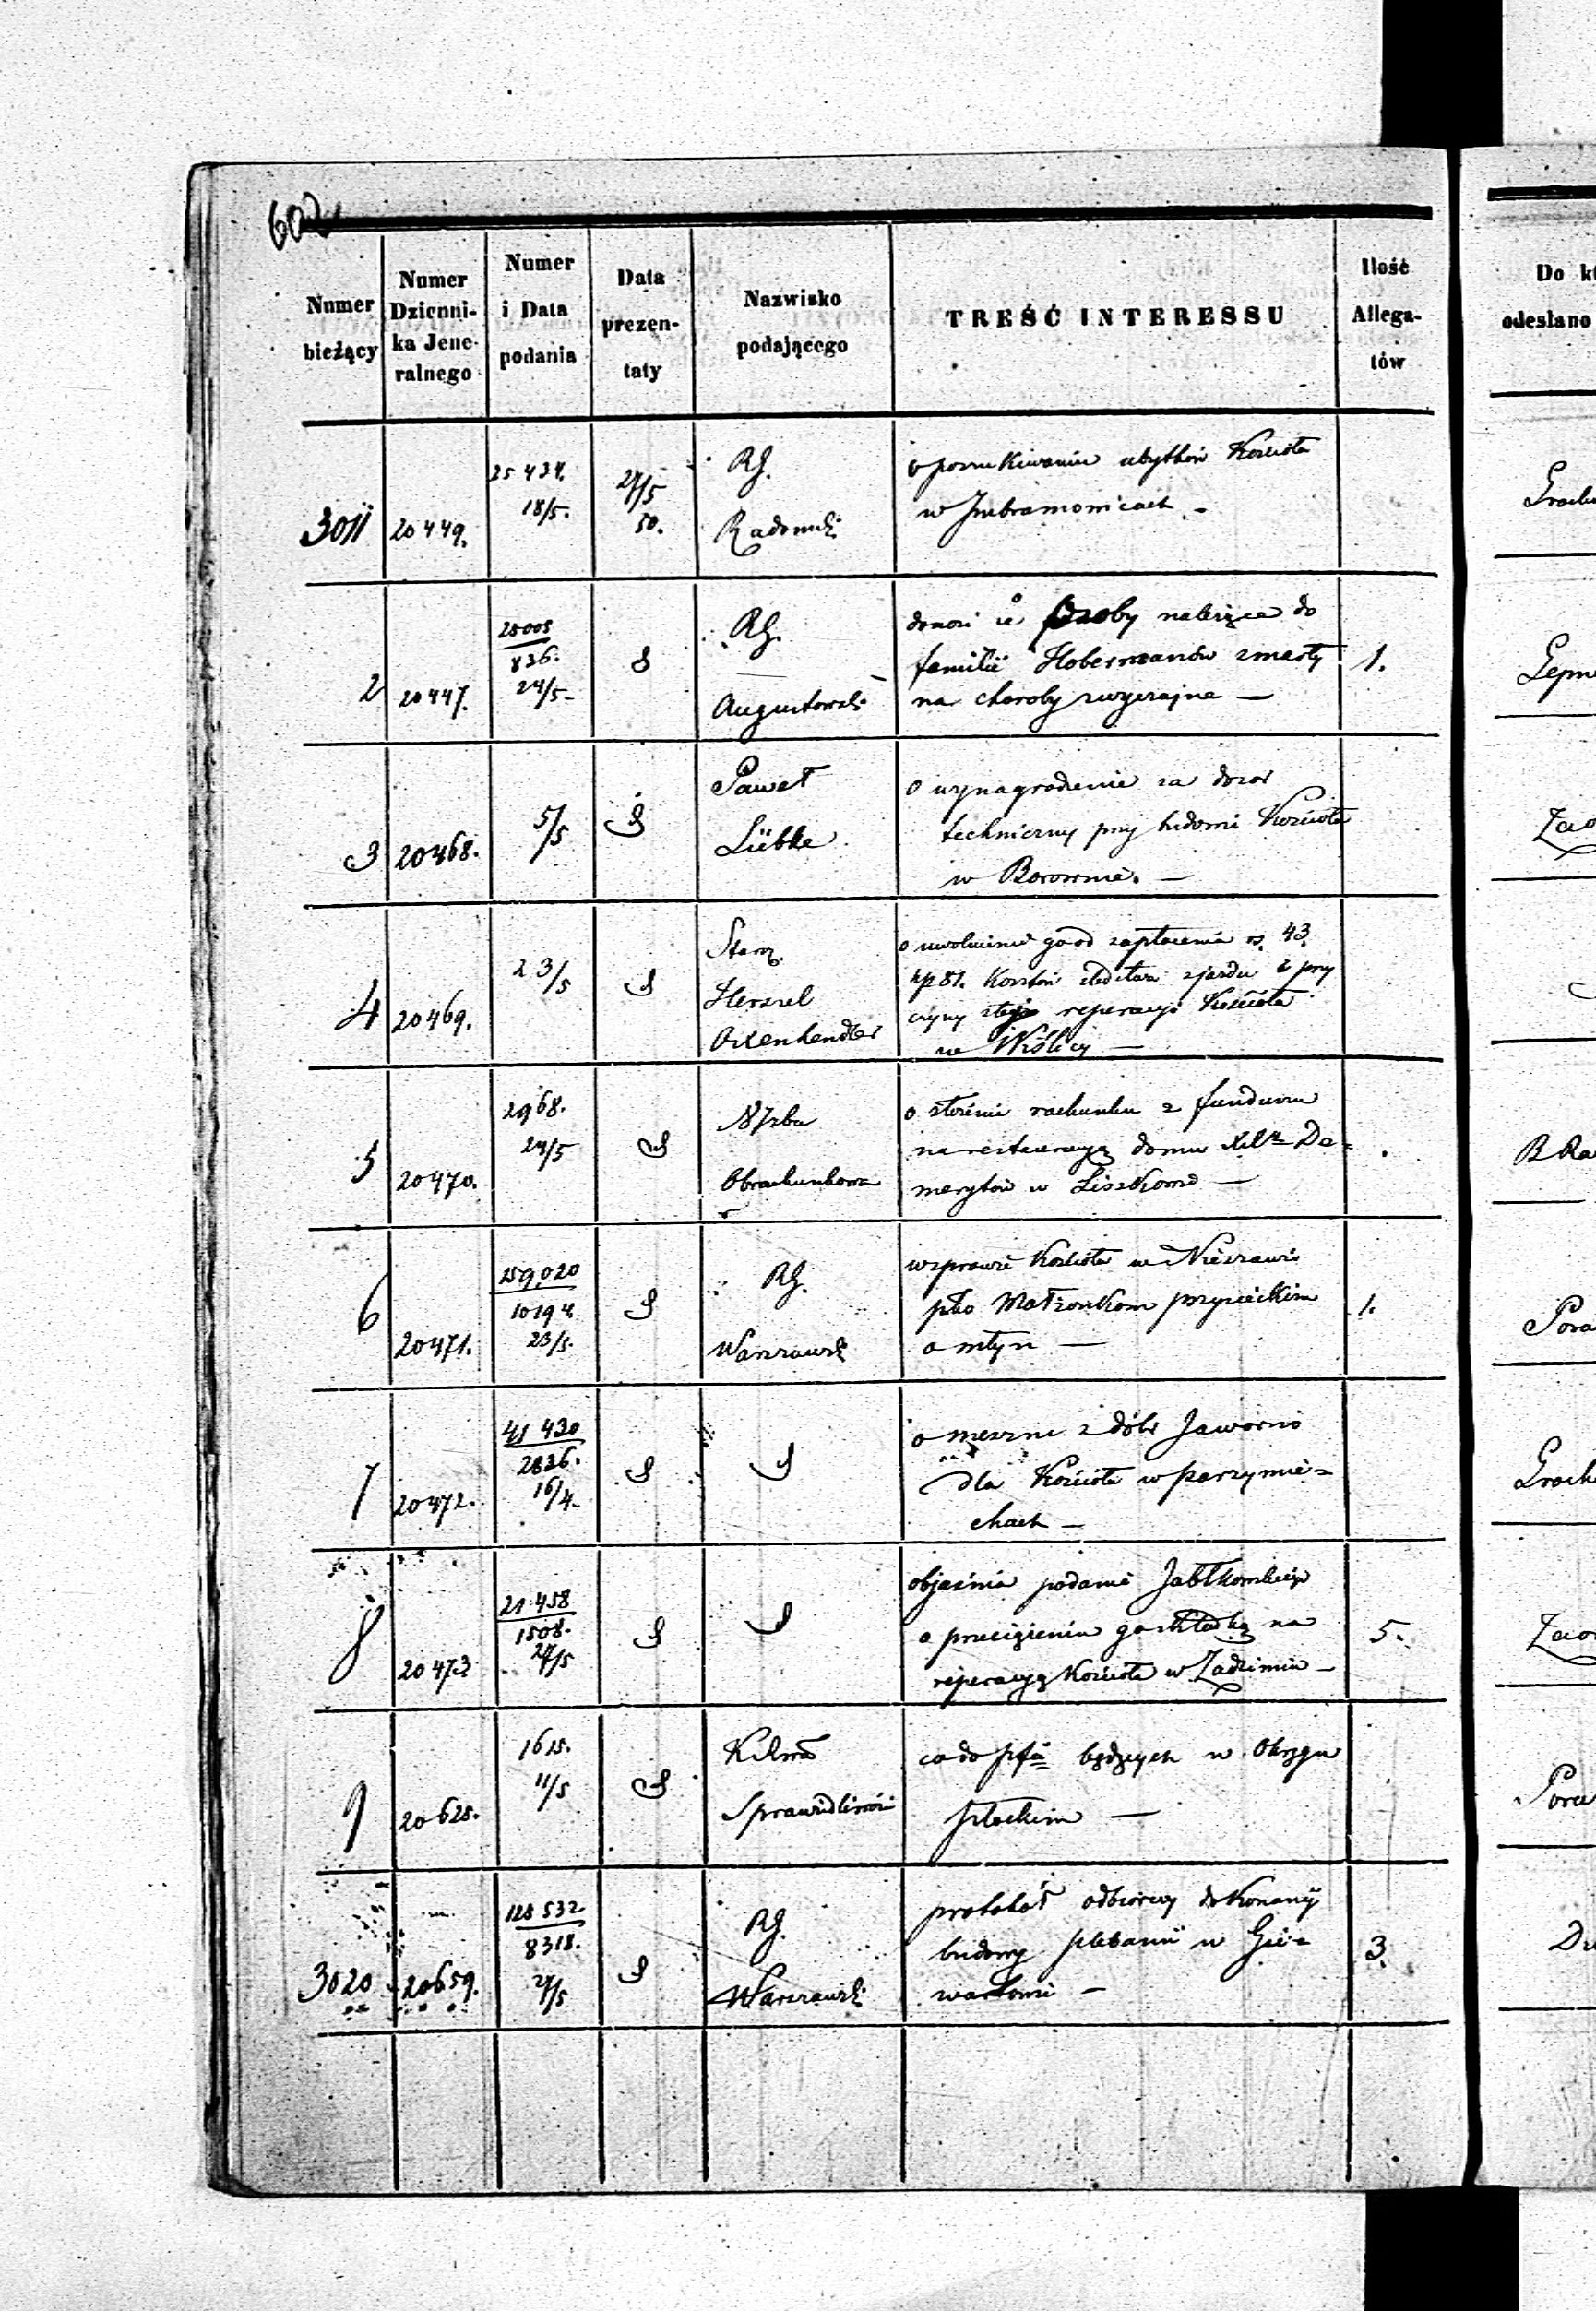 602
Numer bieżący
Numer Dzienni-ka Jene-ralnego
Numer i Data podania
Data prezen-taty
Nazwisko podającego
TREŚĆ INTERESSU
Ilość Allega-tów
Do
odesłano
3011 20449. 25 434. 18/5. 27/5 50. RG. Radomski
o poszukiwaniu ubytków Kościoła
w Imbramowicach –
2 20447. 836. 24/5 RG. Augustowski 1.
donosi że osoby należące do
familii Hobermanów zmarły
na choroby zwyczajne —
3 20468. 5/5 Paweł Lübke
o wynagrodzenie za dozor
techniczny przy budowie Kościoła
w Borownie. —
4 20469. 23/5 Staroz. Herszel Oxenhendler
o uwolnienie go od zapłacenia rs. 43.
kp 81. Kosztów zjazdu z przy
czyny reperacyi Kościoła
w Wiślicy —
5 20470. 2968. 24/5 NIzba Obrachunkowa
o złożenie rachunku z funduszu
na restauracyą domu De-
merytów w Liszkowo —
6 20471. 10194. 23/5. RG. Warszawski 1.
wsprawie Kościoła w Nieszawie
pko Małżonkom
o młyn —
7 20472. 41 430 2836. 16/4.
o meszne z dóbr Jaworno
dla Kościoła w parzymie-
chach –
8 20473 21 458 1508. 27/5 5.
objaśnia podanie Jabłkowskiego
o przeciążeniu go składką na
reperacyą Kościoła w Zadzimiu –
9 20625. 1625. 11/5 Sprawiedliwości
co do będących w Okręgu
płockim —
3020 20659. 128 532 8318. 27/5 RG. Warszawski 3.
protokół odbiorczy dokonany
budowy plebanii w Gie-
wartowie –